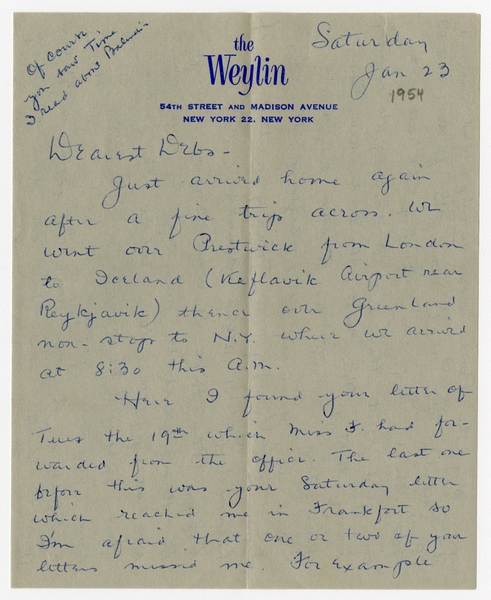 Of course
you saw Time
& read about Balmain's
the
Weylin
54TH STREET AND MADISON AVENUE
NEW YORK 22, NEW YORK
Saturday
Jan 23
1954
Dearest Debs -
Just arrived home again
after a fine trip across. We
went over Prestwick from London
to Iceland (Keflavik Airport near
Reykjavik) thence over Greenland
non-stop to N.Y. where we arrived
at 8:30 this A.M.
Here I found your letter of
Tues the 19th which Miss F. had for-
warded from the office. The last one
before this was your Saturday letter
which reached me in Frankfort so
I'm afraid that one or two of your
letters missed me. For example